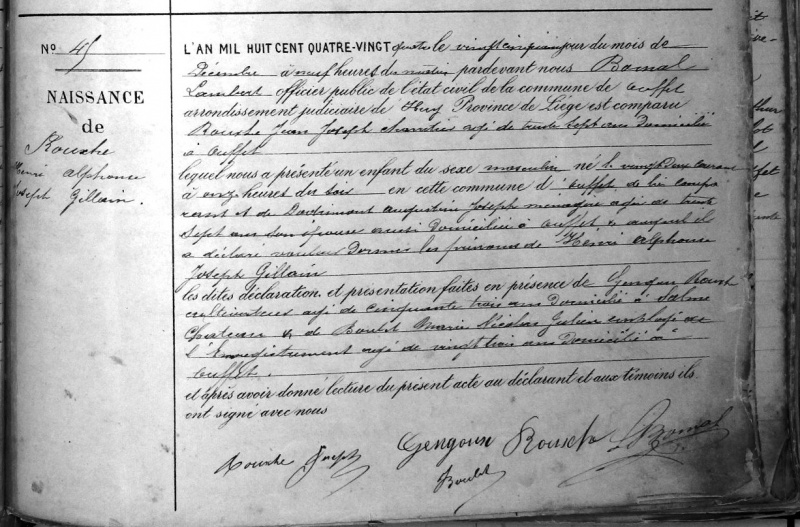 N° 45
NAISSANCE
de
Rouxhe
Henri Alphonse
Joseph Gillain.
L'AN MIL HUIT CENT QUATRE-VINGT quatre le vingt cinquième jour du mois de
Décembre à neuf heures du matin pardevant nous Bomal
Lambert officier public de l'état civil de la commune de Ouffet
arrondissement judiciaire de Huy Province de Liège est comparu
Rouxhe Jean Joseph âgé de trente sept ans Domicilié
à Ouffet
lequel nous a présenté un enfant du sexe masculin né le vingt deux courant
à onze heures du soir en cette commune d'Ouffet de lui compa
rant et de Augustine Joseph ménagère agée de trente
sept ans son épouse aussi Domiciliée à Ouffet & auquel il
a déclaré vouloir Donner les prénoms de Henri Alphonse
Joseph Gillain
les dites déclaration et présentation faites en présence de Gengoux Rouxh
cultivateur agé de cinquante trois ans Domicilié à Salme
Chateau & de Boulet Marie Nicolas Julien employé de
l'Enregistrement agé de vingt trois ans Domicilié à
Ouffet.
et après avoir donné lecture du présent acte au déclarant et aux témoins ils
ont signé avec nous
Rouxhe Joseph Gengoux Rouxh L Bomal
Boulet